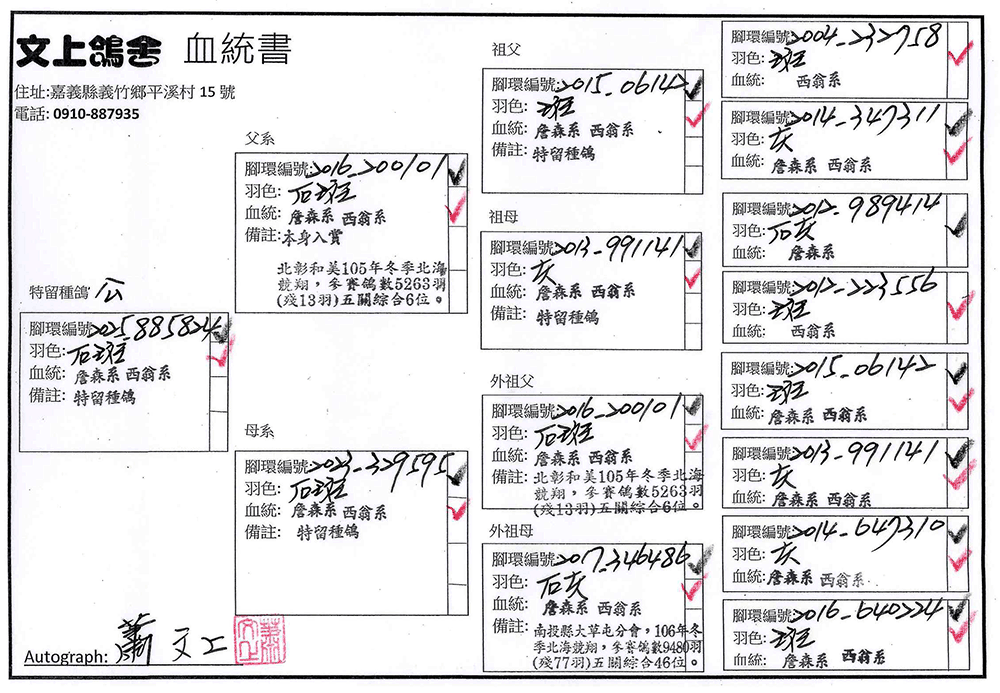 文上鴿舍 血統書
住址:嘉義縣義竹鄉平溪村 15 號
電話: 0910-887935
特留種鴿 公
腳環編號:2025.885824
羽色:石斑
血統:詹森系 西翁系
備註:特留種鴿
父系
腳環編號:2016_200101
羽色:石斑
血統:詹森系 西翁系
備註:本身入賞
北彰和美105年冬季北海
競翔,參賽鴿數5263羽
(殘13羽)五關綜合6位。
母系
腳環編號:2023_329595
羽色:石斑
血統:詹森系 西翁系
備註: 特留種鴿
祖父
腳環編號:2015_06142
羽色:斑
血統:詹森系 西翁系
備註:特留種鴿
祖母
腳環編號:2013_991141
羽色:灰
血統:詹森系 西翁系
備註: 特留種鴿
外祖父
腳環編號:2016_200101
羽色:石斑
血統:詹森系 西翁系
備註:北彰和美105年冬季北海
競翔,參賽鴿數5263羽
(殘13羽)五關綜合6位。
外祖母
腳環編號:2017_346486
羽色:石灰
血統: 詹森系 西翁系
備註:南投縣大草屯分會,106年冬
季北海競翔,參賽鴿數9480羽
(殘77羽)五關綜合46位。
腳環編號:2004_232758
羽色:斑
血統: 西翁系
腳環編號:2014_347311
羽色:灰
血統:詹森系 西翁系
腳環編號:2012_989414
羽色:石灰
血統: 詹森系
腳環編號:2012_223556
羽色:斑
血統: 西翁系
腳環編號:2015_06142
羽色:斑
血統:詹森系 西翁系
腳環編號:2013_991141
羽色:灰
血統:詹森系 西翁系
腳環編號:2014_647310
羽色:灰
血統:詹森系 西翁系
腳環編號:2016_640224
羽色:斑
血統: 詹森系 西翁系
Autograph: 蕭文上
蕭文上